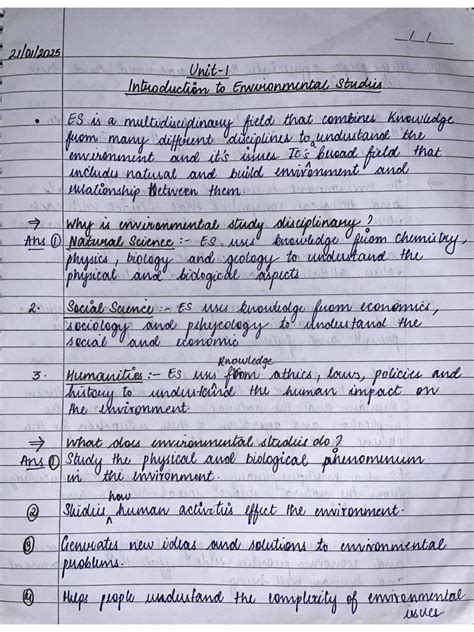 _/_/_
21/01/2025
Unit-1
Introduction to Environmental Studies
• ES is a multidisciplinary field that combines knowledge
from many different disciplines to understand the
environment and it's issues It's a broad field that
includes natural and build environment and
relationship between them.
→ Why is environmental study disciplinary?
Ans ① Natural Science :- ES uses knowledge from chemistry,
physics, biology and geology to understand the
physical and biological aspects
2. Social Science :- ES uses knowledge from economics,
sociology and phycology to understand the
social and economic
3. Humanities :- ES uses Knowledge from athics, laws, policies and
history to understand the human impact on
the environment
⇒ What does environmental studies do?
Ans ① Study the physical and biological phenomenum
in the environment.
② Studies how human activities effect the environment.
③ Generates new ideas and solutions to environmental
problems.
④ Helps people understand the complexity of environmental
issues.